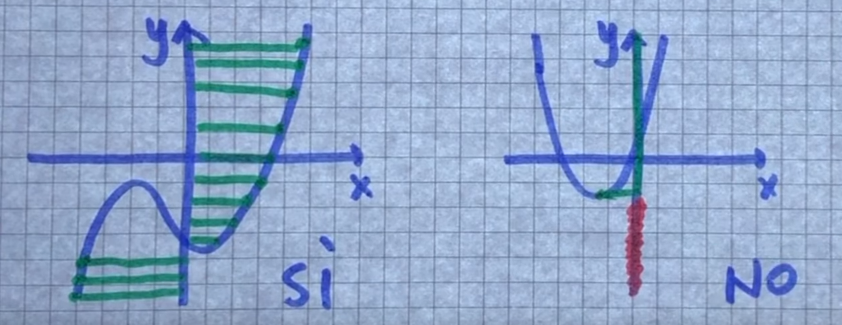 y
x
Sì
y
x
NO